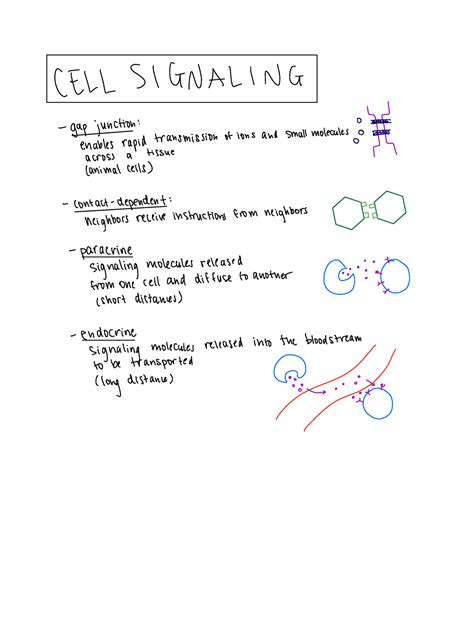 CELL SIGNALING
- gap junction:
enables rapid transmission of ions and small molecules
across a tissue
(animal cells)
- contact-dependent:
Neighbors receive instructions from neighbors
- paracrine
Signaling molecules released
from one cell and diffuse to another
(short distances)
- endocrine
Signaling molecules released into the bloodstream
to be transported
(long distance)